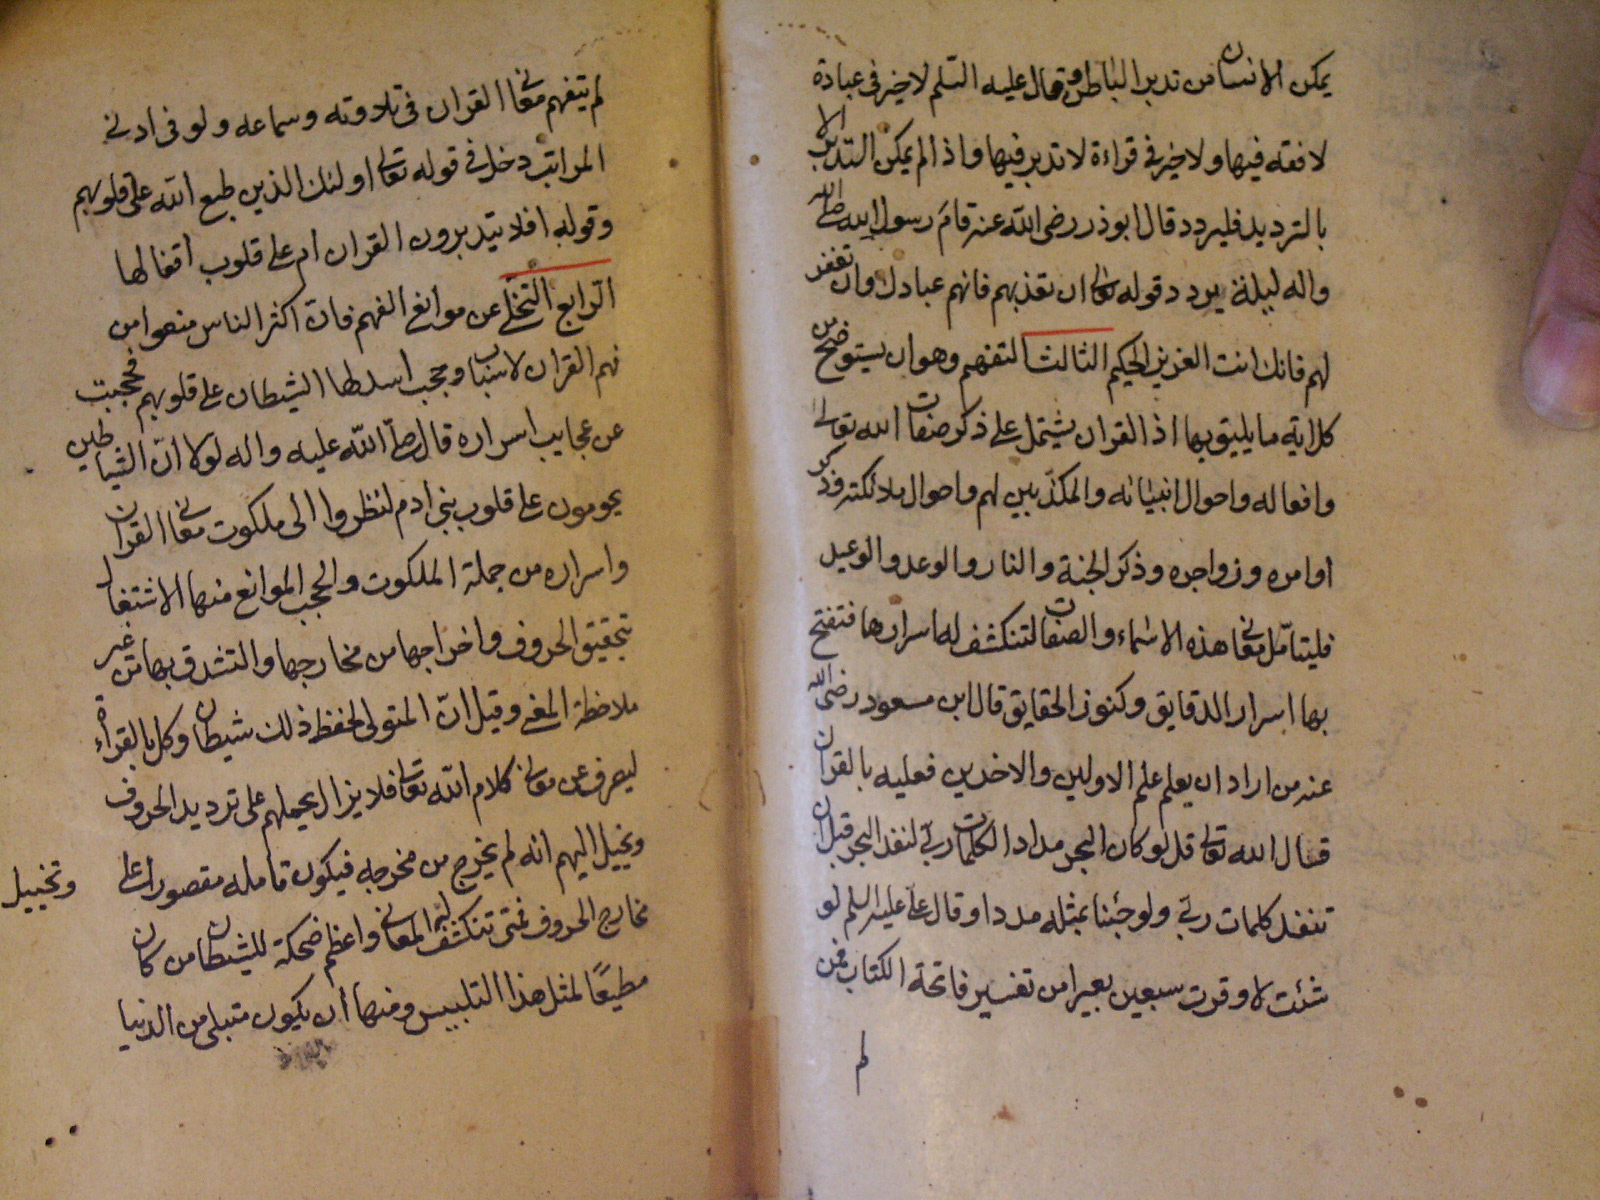 يمكن الانسان من تدبر الباطن وقال عليه السلم لا خير في عبادة
لا فقه فيها ولا خير في قراءة لا تدبر فيها واذا لم يمكن التدبر الا
بالترديد فليردد قال ابوذر رضى الله عنه قام رسول الله صلى الله
واله ليلة يردد قوله تعالى ان تعذبهم فانهم عبادك وان تغفر
لهم فانك انت العزيز الحكيم الثالث التفهم وهو ان يستوضح من
كل اية ما يليق بها اذ القران يشتمل على ذكر صفات الله تعالى
وافعاله واحوال انبيائه والمكذبين لهم واحوال ملائكته وذكر
اوامره وزواجره وذكر الجنة والنار والوعد والوعيد
فليتامّل معانى هذه الاسماء والصفات لتنكشف له اسرارها فتفتح
بها اسرار الدقايق وكنوز الحقايق قال ابن مسعود رضى الله
عنه من اراد ان يعلم علم الاولين والاخرين فعليه بالقران
قال الله تعالى قل لو كان البحر مدادا لكلمات ربّي لنفد البحر قبل ان
تنفد كلمات ربّي ولو جئنا بمثله مددا وقال علىّ عليه السلم لو
شئت لاوقرت سبعين بعيرا من تفسير فاتحة الكتاب فمن
لم
لم يتفهم معانى القران في تلاوته وسماعه ولو في ادنى
المراتب دخل في قوله تعالى اولئك الذين طبع الله على قلوبهم
وقوله افلا يتدبرون القران ام على قلوب اقفالها
الرابع التخلّى عن موانع الفهم فان اكثر الناس منعوا من
فهم القران لاسباب وحجب اسدلها الشيطان على قلوبهم فحجبت
عن عجايب اسراره قال صلّى الله عليه واله لولا انّ الشياطين
يحومون على قلوب بني ادم لنظروا الى ملكوت معانى القران
واسراره من جملة الملكوت والحجب الموانع منها الاشتغال
بتحقيق الحروف واخراجها من مخارجها والتشدق بها من غير
ملاحظة المعنى وقيل انّ المتولى لحفظ ذلك شيطان وكل بالقراءة
ليصرف عن معانى كلام الله تعالى فلا يزال يحملهم على ترديد الحروف
ويخيل اليهم انه لم يخرج من مخرجه فيكون تامله مقصورا على
وتخييل
مخارج الحروف فمتى تنكشف له المعانى واعظم ضحكة للشيطان من كان
مطيعًا لمثل هذا التلبيس ومنها ان يكون مبتلى من الدنيا